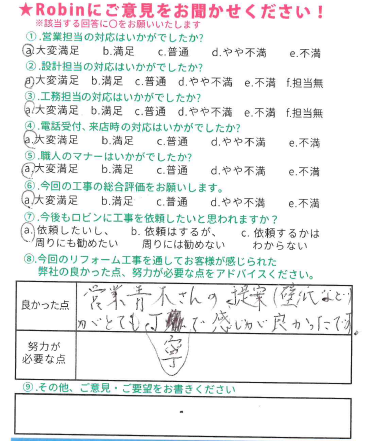 ★Robinにご意見をお聞かせください！
※該当する回答に〇をお願いいたします
①.営業担当の対応はいかがでしたか?
a.大変満足 b.満足 c.普通 d.やや不満 e.不満
②.設計担当の対応はいかがでしたか?
a.大変満足 b.満足 c.普通 d.やや不満 e.不満 f.担当無
③.工務担当の対応はいかがでしたか?
a.大変満足 b.満足 c.普通 d.やや不満 e.不満 f.担当無
④.電話受付、来店時の対応はいかがでしたか?
a.大変満足 b.満足 c.普通 d.やや不満 e.不満
⑤.職人のマナーはいかがでしたか?
a.大変満足 b.満足 c.普通 d.やや不満 e.不満
⑥.今回の工事の総合評価をお願いします。
a.大変満足 b.満足 c.普通 d.やや不満 e.不満
⑦.今後もロビンに工事を依頼したいと思われますか？
a.依頼したいし、 b.依頼はするが、 c.依頼するかは
周りにも勧めたい 周りには勧めない わからない
⑧.今回のリフォーム工事を通してお客様が感じられた
弊社の良かった点、努力が必要な点をアドバイスください。
良かった点
営業青木さんの提案(壁紙など)
がとても丁寧で感じが良かったです。
努力が
必要な点
⑨.その他、ご意見・ご要望をお書きください